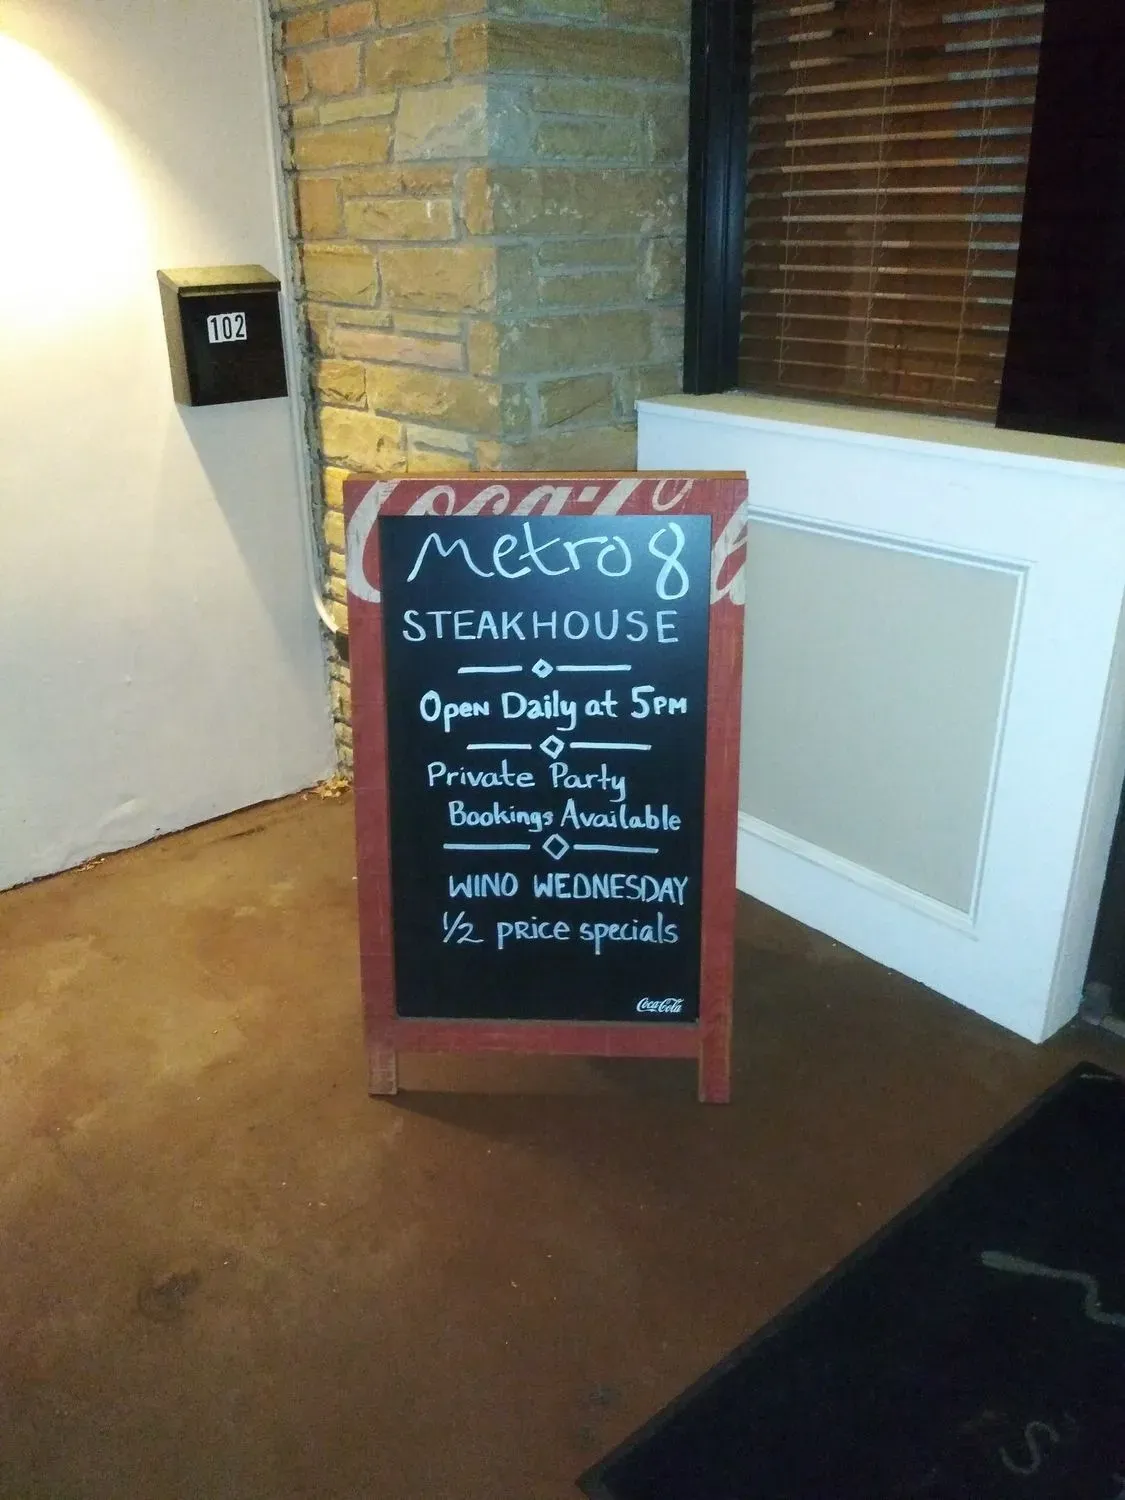 102
Coca-Cola
Metro 8
STEAKHOUSE
Open Daily at 5PM
Private Party
Bookings Available
WINO WEDNESDAY
1/2 price specials
Coca-Cola